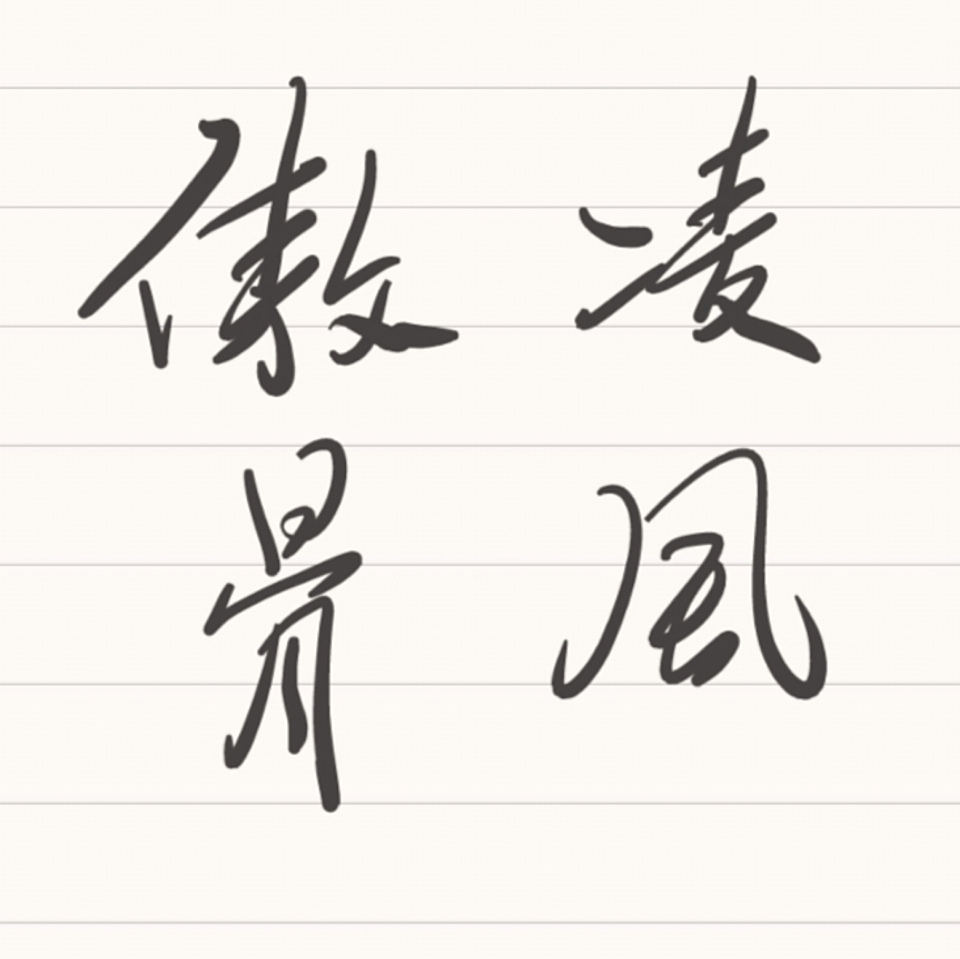 凌風
傲骨